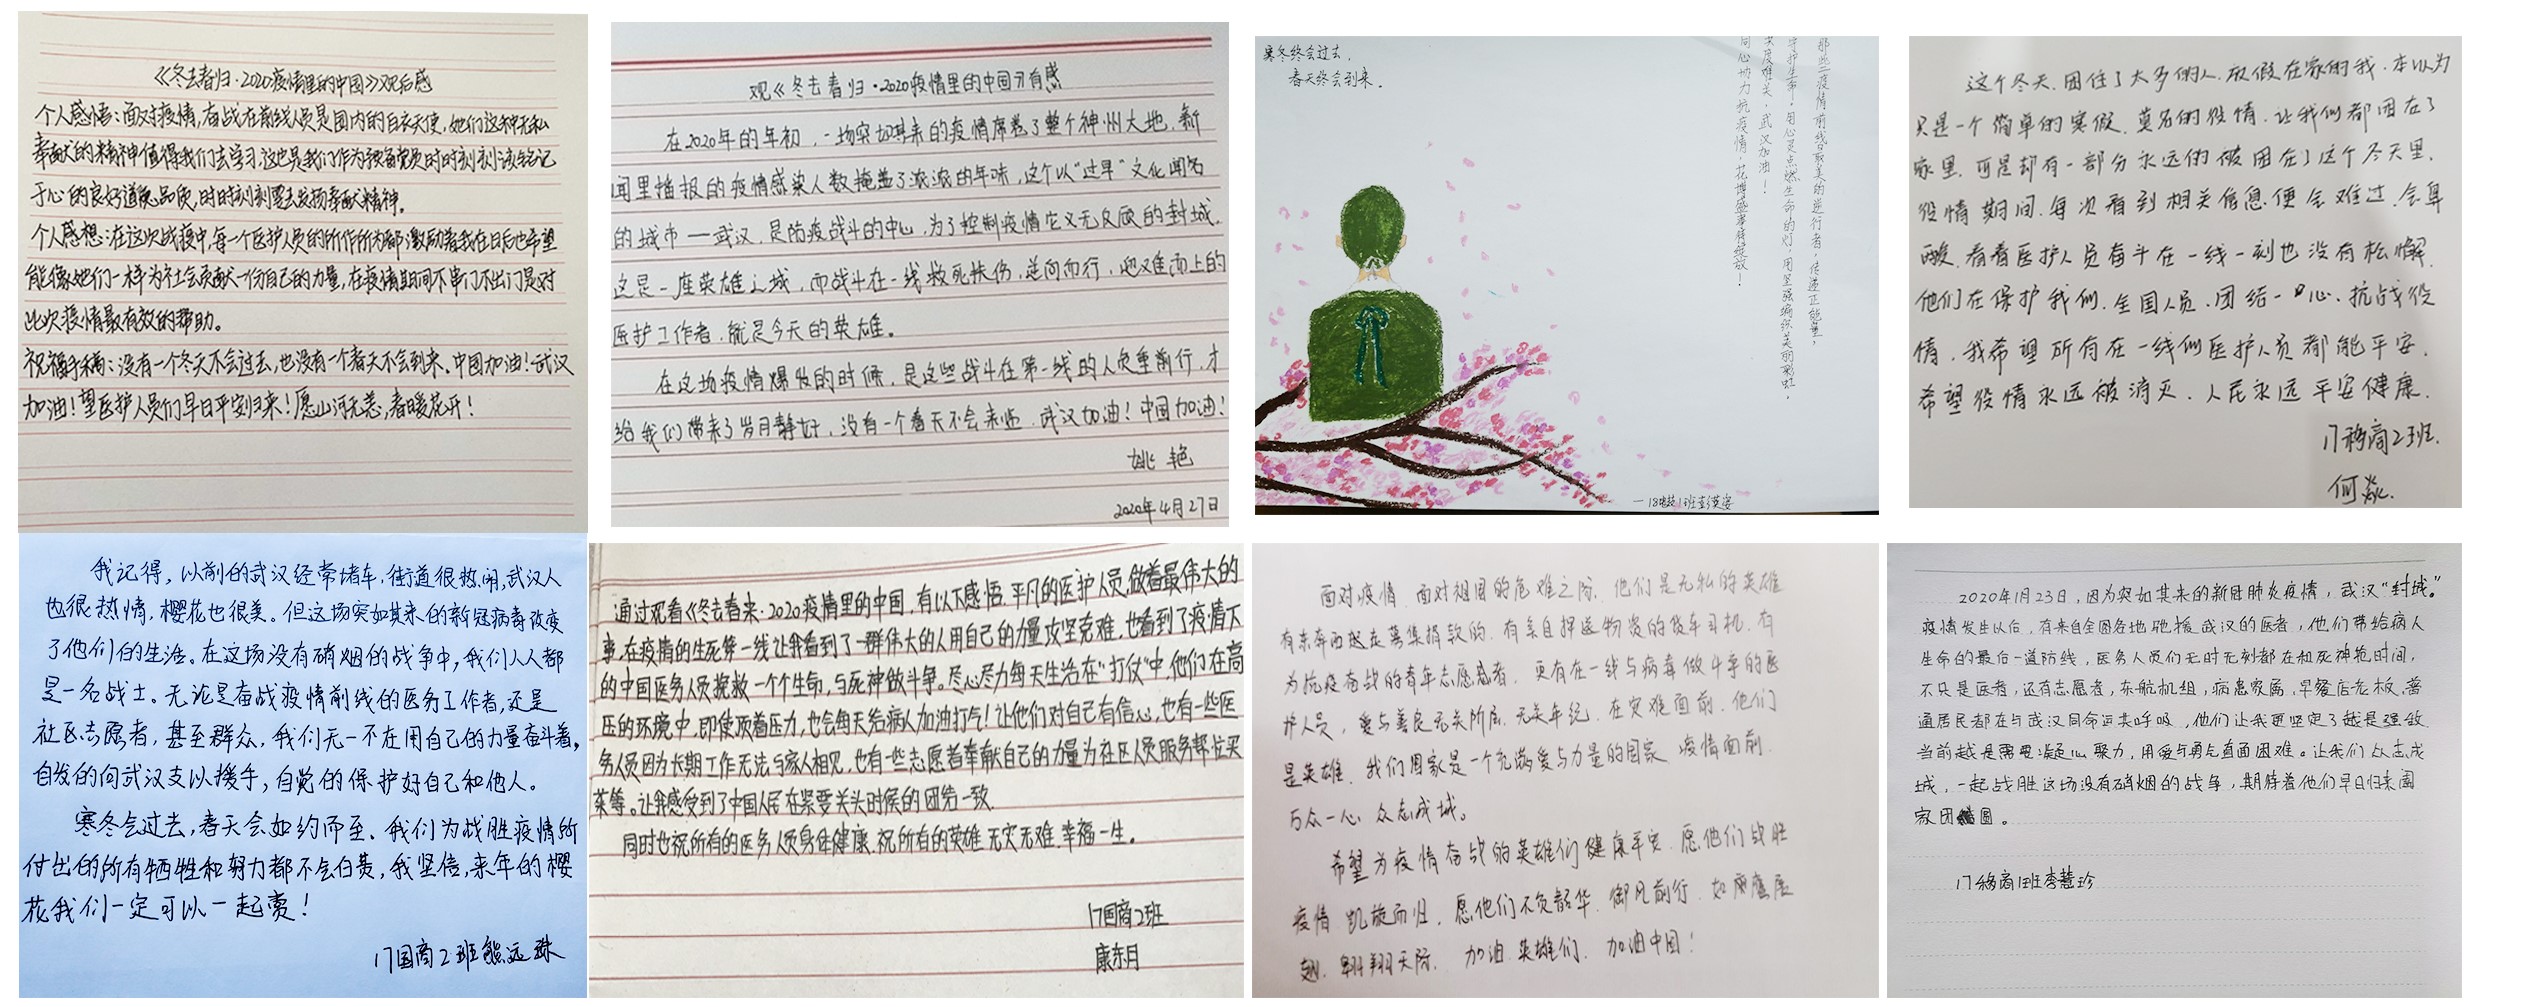 《冬去春归·2020疫情里的中国》观后感
个人感悟:面对疫情,奋战在前线人员是国内的白衣天使,她们这种无私
奉献的精神值得我们去学习,这也是我们作为预备党员时时刻刻该铭记
于心的良好道德品质,时时刻刻要去发扬奉献精神。
个人感想:在这次战疫中,每一个医护人员的所作所为都激励着我在日后也希望
能像她们一样为社会贡献一份自己的力量,在疫情期间不串门不出门是对
此次疫情最有效的帮助。
祝福手稿:没有一个冬天不会过去,也没有一个春天不会到来。中国加油!武汉
加油!望医护人员们早日平安归来!愿山河无恙,春暖花开!
观《冬去春归·2020疫情里的中国》有感
在2020年的年初,一场突如其来的疫情席卷了整个神州大地,新
闻里播报的疫情感染人数掩盖了浓浓的年味,这个以“过早”文化闻名
的城市——武汉,是防疫战斗的中心,为了控制疫情它义无反顾的封城,
这是一座英雄之城,而战斗在一线救死扶伤,逆向而行,迎难而上的
医护工作者,就是今天的英雄。
在这场疫情爆发的时候,是这些战斗在第一线的人负重前行,才
给我们带来了岁月静好,没有一个春天不会来临,武汉加油!中国加油!
姚艳
2020年4月27日
寒冬终会过去,
春天终会到来。
那些疫情前线最美的逆行者,传递正能量,
守护生命,用心灵点燃生命的灯,用坚强编织美丽彩虹,
共度难关,武汉加油!
同心协力抗疫情,花博盛事待绽放!
这个冬天,困住了太多的人,放假在家的我,本以为
只是一个简单的寒假,莫名的役情,让我们都困在了
家里,可是却有一部分永远的被困在了这个冬天里,
役情期间,每次看到相关信息便会难过,会鼻
酸,看着医护人员奋斗在一线一刻也没有松懈,
他们在保护我们,全国人员,团结一心,抗战役
情,我希望所有在一线的医护人员都能平安,
希望役情永远被消灭,人民永远平安健康,
17移商2班,
何焱.
我记得,以前的武汉经常堵车,街道很热闹,武汉人
也很热情,樱花也很美。但这场突如其来的新冠病毒改变
了他们的生活。在这场没有硝烟的战争中,我们人人都
是一名战士。无论是奋战疫情前线的医务工作者,还是
社区志愿者,甚至群众,我们无一不在用自己的力量奋斗着,
自发的向武汉支以援手,自觉的保护好自己和他人。
寒冬会过去,春天会如约而至、我们为战胜疫情所
付出的所有牺牲和努力都不会白费,我坚信,来年的樱
花我们一定可以一起赏!
17国商2班熊远珠
通过观看《冬去春来·2020疫情里的中国,有以下感悟.平凡的医护人员,做着最伟大的
事,在疫情的生死第一线让我看到了一群伟大的人用自己的力量攻坚克难,也看到了疫情下
的中国医务人员挽救一个个生命,与死神做斗争。尽心尽力每天生活在“打仗”中,他们在高
压的环境中,即使顶着压力,也会每天给病人加油打气!让他们对自己有信心,也有一些医
务人员因为长期工作无法与家人相见,也有一些志愿者奉献自己的力量为社区人员服务帮忙买
菜等。让我感受到了中国人民在紧要关头时候的团结一致.
同时也祝所有的医务人员身体健康.祝所有的英雄无灾无难.幸福一生。
17国商2班
康东月
面对疫情,面对祖国的危难之际,他们是无私的英雄
有东奔西赶在募集捐款的,有亲自押送物资的货车司机,有
为抗疫奋战的青年志愿者,更有在一线与病毒做斗争的医
护人员,爱与善良无关阶层,无关年纪,在灾难面前,他们
是英雄,我们国家是一个充满爱与力量的国家,疫情面前,
万众一心,众志成城。
希望为疫情奋战的英雄们健康平安,愿他们战胜
疫情,凯旋而归,愿他们不负韶华,御风前行,如雄鹰展
翅,翱翔天际,加油英雄们,加油中国!
2020年1月23日,因为突如其来的新冠肺炎疫情,武汉“封城”
疫情发生以后,有来自全国各地驰援武汉的医者,他们带给病人
生命的最后一道防线,医务人员们无时无刻都在和死神抢时间,
不只是医者,还有志愿者,东航机组,病患家属,早餐店老板,普
通居民都在与武汉同命运共呼吸,他们让我更坚定了越是强敌
当前越是需要凝心聚力,用爱与勇气直面困难。让我们众志成
城,一起战胜这场没有硝烟的战争,期待着他们早日归来阖
家团圆。
17移商1班李慧珍